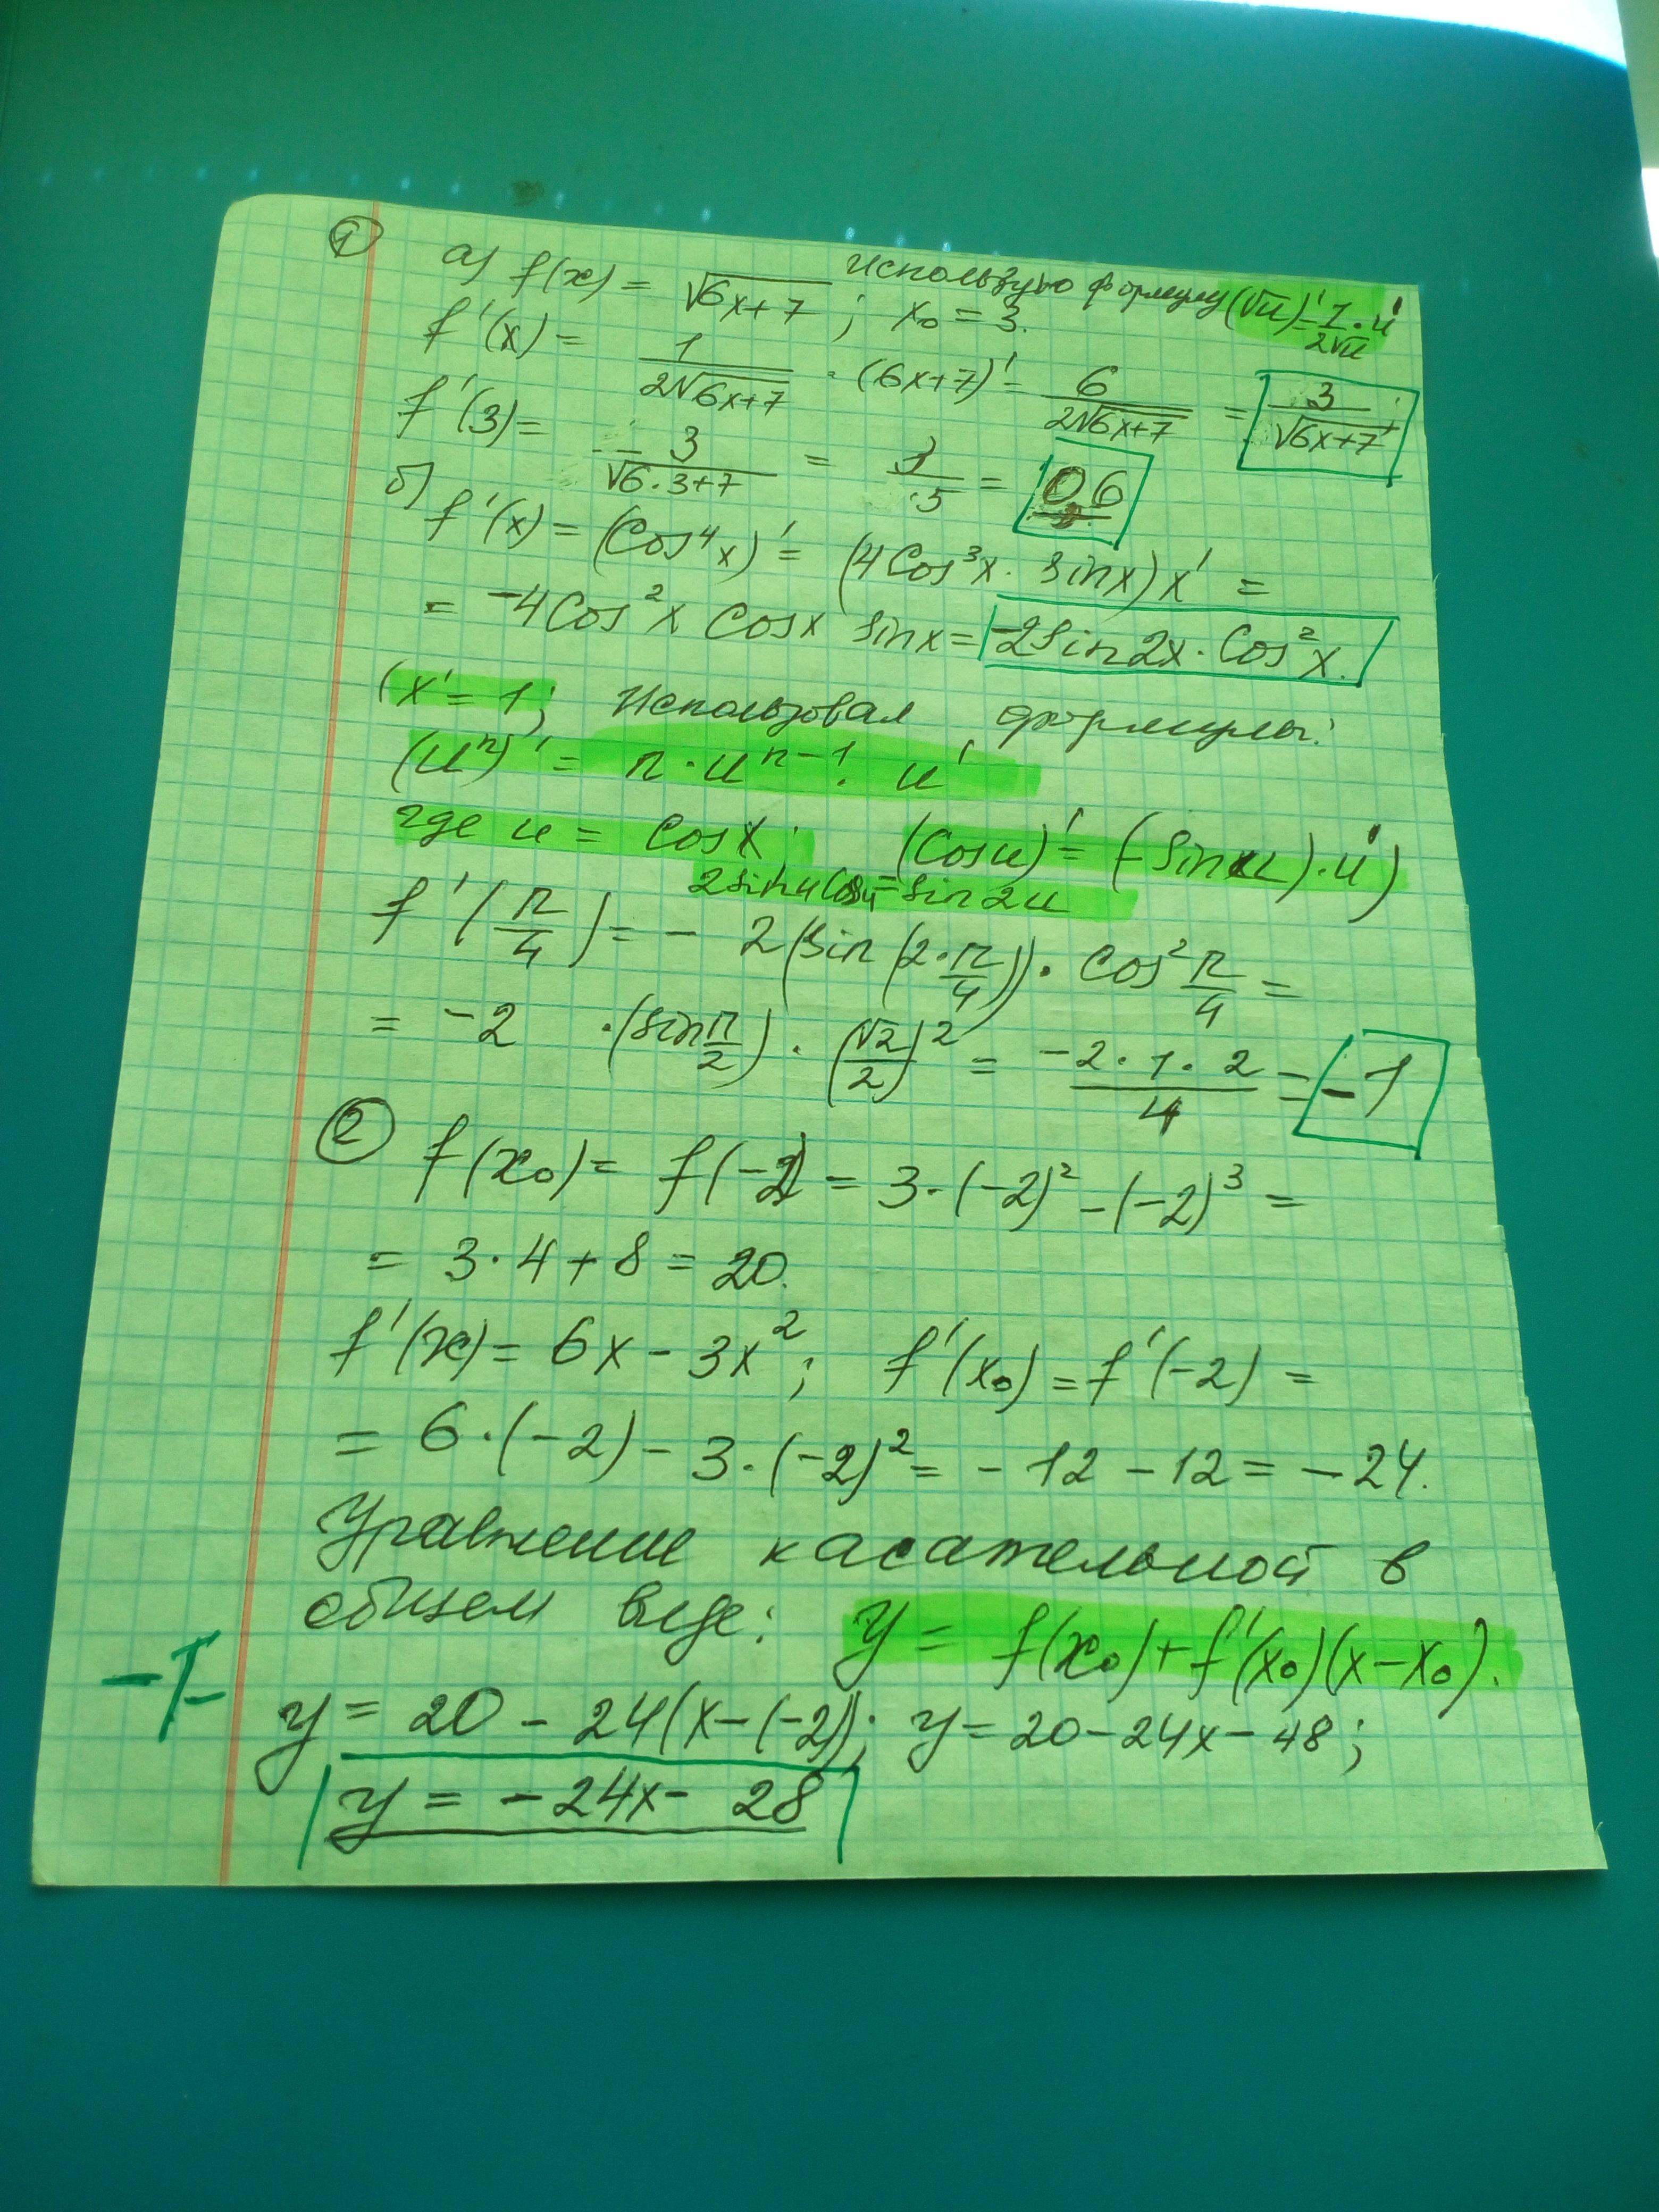 ① а) f(x) = √6x+7 ; x₀ = 3. Использую формулу (√u)' = 1/2√u · u'
f'(x) = 1/2√6x+7 · (6x+7)' = 6/2√6x+7 = 3/√6x+7
f'(3) = 3/√6·3+7 = 3/5 = 0,6
б) f'(x) = (Cos⁴x)' = (4Cos³x · sinx)x' =
= -4Cos²x Cosx sinx = -2Sin2x · Cos²x.
(x' = 1; Использовал формулы:
(uⁿ)' = n · uⁿ⁻¹ · u',
где u = Cosx; (Cosu)' = (-Sinu) · u')
2sinuCosu = sin2u
f'(π/4) = - 2(sin(2·π/4)) · Cos²π/4 =
= -2 · (sinπ/2) · (√2/2)² = -2·1·2/4 = -1
② f(x₀) = f(-2) = 3·(-2)² - (-2)³ =
= 3·4 + 8 = 20.
f'(x) = 6x - 3x²; f'(x₀) = f'(-2) =
= 6·(-2) - 3·(-2)² = -12 - 12 = -24.
Уравнение касательной в
общем виде: y = f(x₀) + f'(x₀)(x - x₀).
-1-
y = 20 - 24(x - (-2)); y = 20 - 24x - 48;
y = -24x - 28